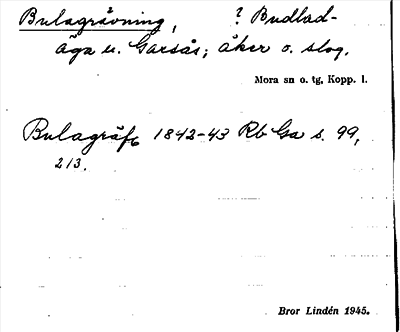 Bulagrävning, ? Budlad-
äga u. Garsås; åker o. slog.
Mora sn o. tg, Kopp. l.
Bulagräf 1842-43 Rb Ga s. 99,
213.
Bror Lindén 1945.